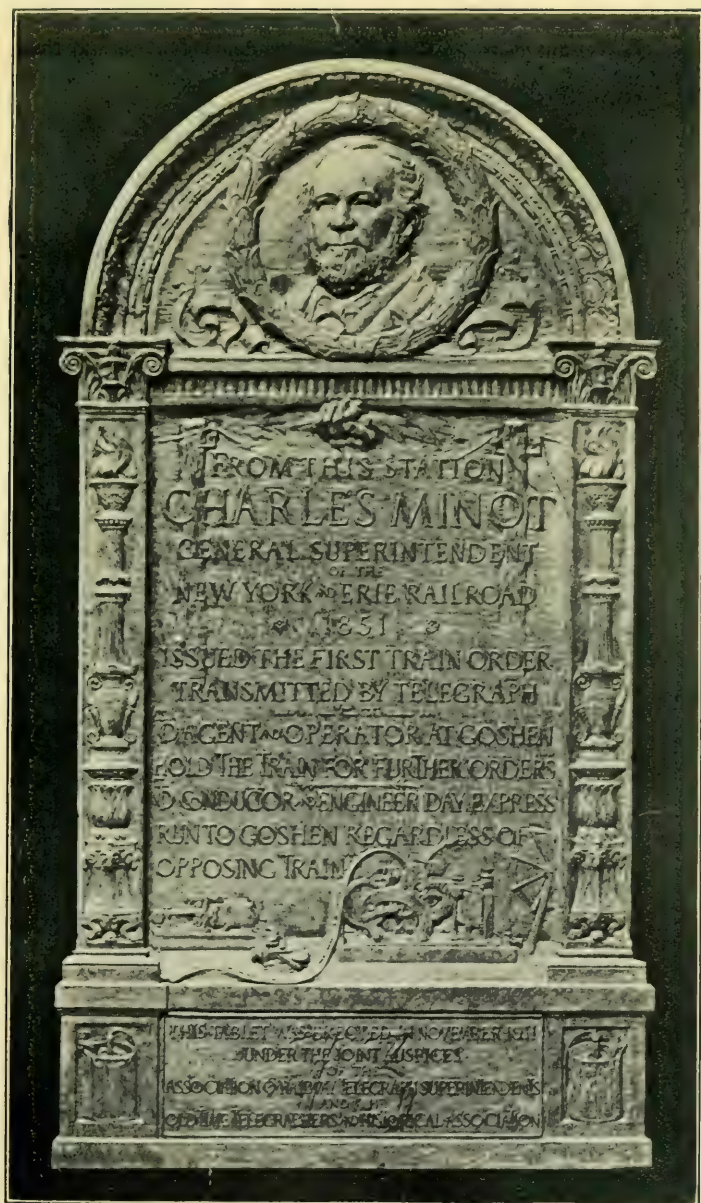 FROM THIS STATION
CHARLES MINOT
GENERAL SUPERINTENDENT
OF THE
NEW YORK AND ERIE RAILROAD
1851
ISSUED THE FIRST TRAIN ORDER
TRANSMITTED BY TELEGRAPH
TO AGENT AND OPERATOR AT GOSHEN
HOLD THE TRAIN FOR FURTHER ORDERS
TO CONDUCTOR AND ENGINEER DAY EXPRESS
RUN TO GOSHEN REGARDLESS OF
OPPOSING TRAIN
THIS TABLET WAS ERECTED IN NOVEMBER 1911
UNDER THE JOINT AUSPICES
OF THE
ASSOCIATION OF RAILWAY TELEGRAPH SUPERINTENDENTS
AND THE
OLD TIME TELEGRAPHERS AND HISTORICAL ASSOCIATION